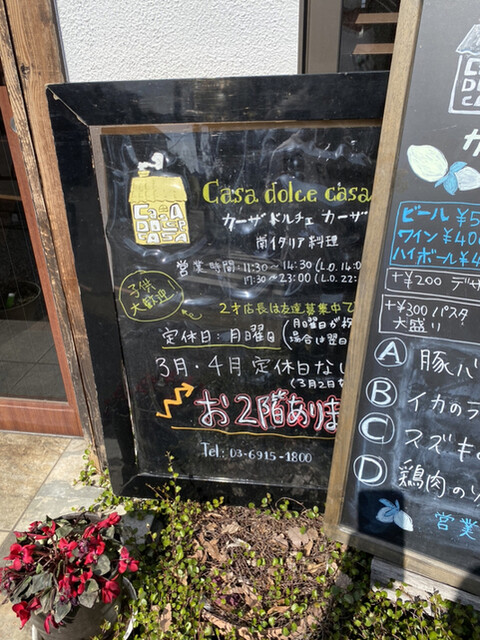 CASA
DOLCE
CASA
Casa dolce casa
カーザ ドルチェ カーザ
南イタリア料理
営業時間：11:30〜14:30(L.O.14:0
17:30〜23:00(L.O.22:
子供
大歓迎！
2才店長は友達募集中で
定休日：月曜日
月曜日が祝
場合は翌日
3月・4月 定休日な
(3月2日
お2階ありま
Tel: 03-6915-1800
カ
ビール ¥5
ワイン ¥40
ハイボール ¥4
+¥200
+¥300 パスタ
大盛り
A 豚バ
B イカのラ
C スズキ
D 鶏肉のソ
営業